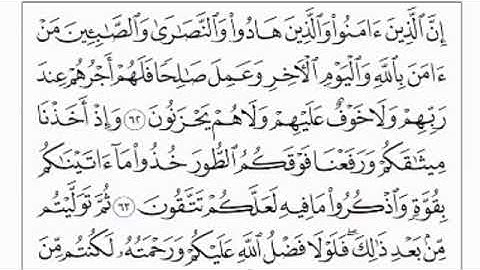 إِنَّ ٱلَّذِينَ ءَامَنُوا۟ وَٱلَّذِينَ هَادُوا۟ وَٱلنَّصَٰرَىٰ وَٱلصَّٰبِـِٔينَ مَنْ
ءَامَنَ بِٱللَّهِ وَٱلْيَوْمِ ٱلْءَاخِرِ وَعَمِلَ صَٰلِحًا فَلَهُمْ أَجْرُهُمْ عِندَ
رَبِّهِمْ وَلَا خَوْفٌ عَلَيْهِمْ وَلَا هُمْ يَحْزَنُونَ ٦٢ وَإِذْ أَخَذْنَا
مِيثَٰقَكُمْ وَرَفَعْنَا فَوْقَكُمُ ٱلطُّورَ خُذُوا۟ مَآ ءَاتَيْنَٰكُم
بِقُوَّةٍ وَٱذْكُرُوا۟ مَا فِيهِ لَعَلَّكُمْ تَتَّقُونَ ٦٣ ثُمَّ تَوَلَّيْتُم
مِّنۢ بَعْدِ ذَٰلِكَ ۖ فَلَوْلَا فَضْلُ ٱللَّهِ عَلَيْكُمْ وَرَحْمَتُهُۥ لَكُنتُم مِّنَ